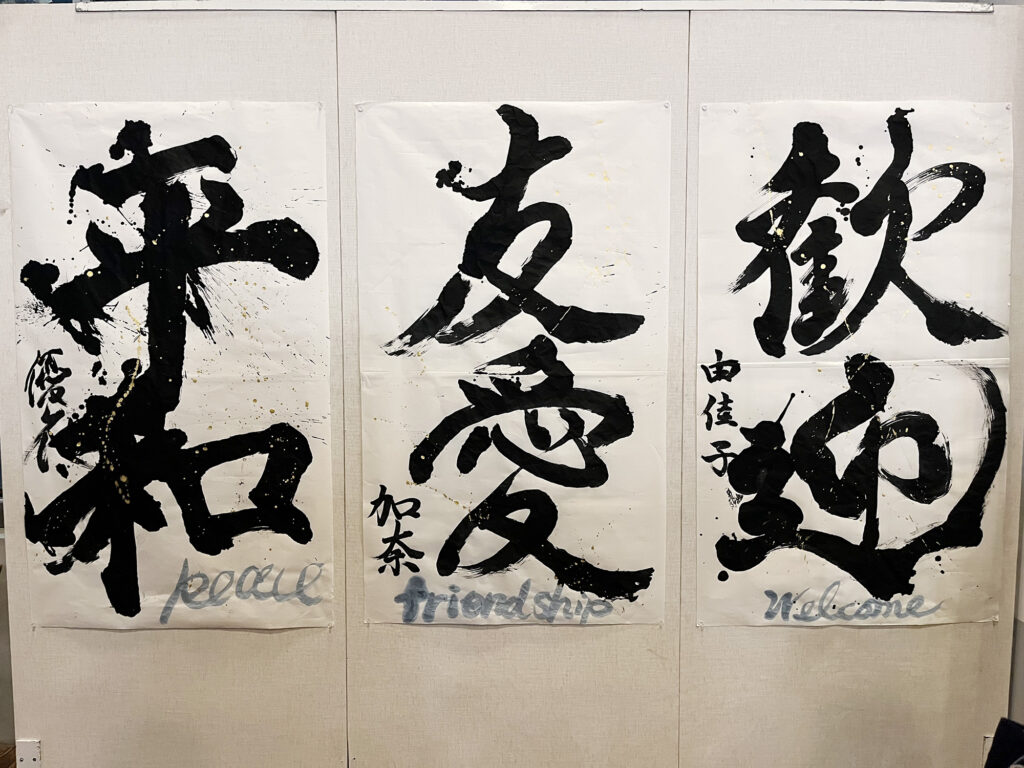 歓迎
由佳子
welcome
友愛
加奈
friendship
平和
peace